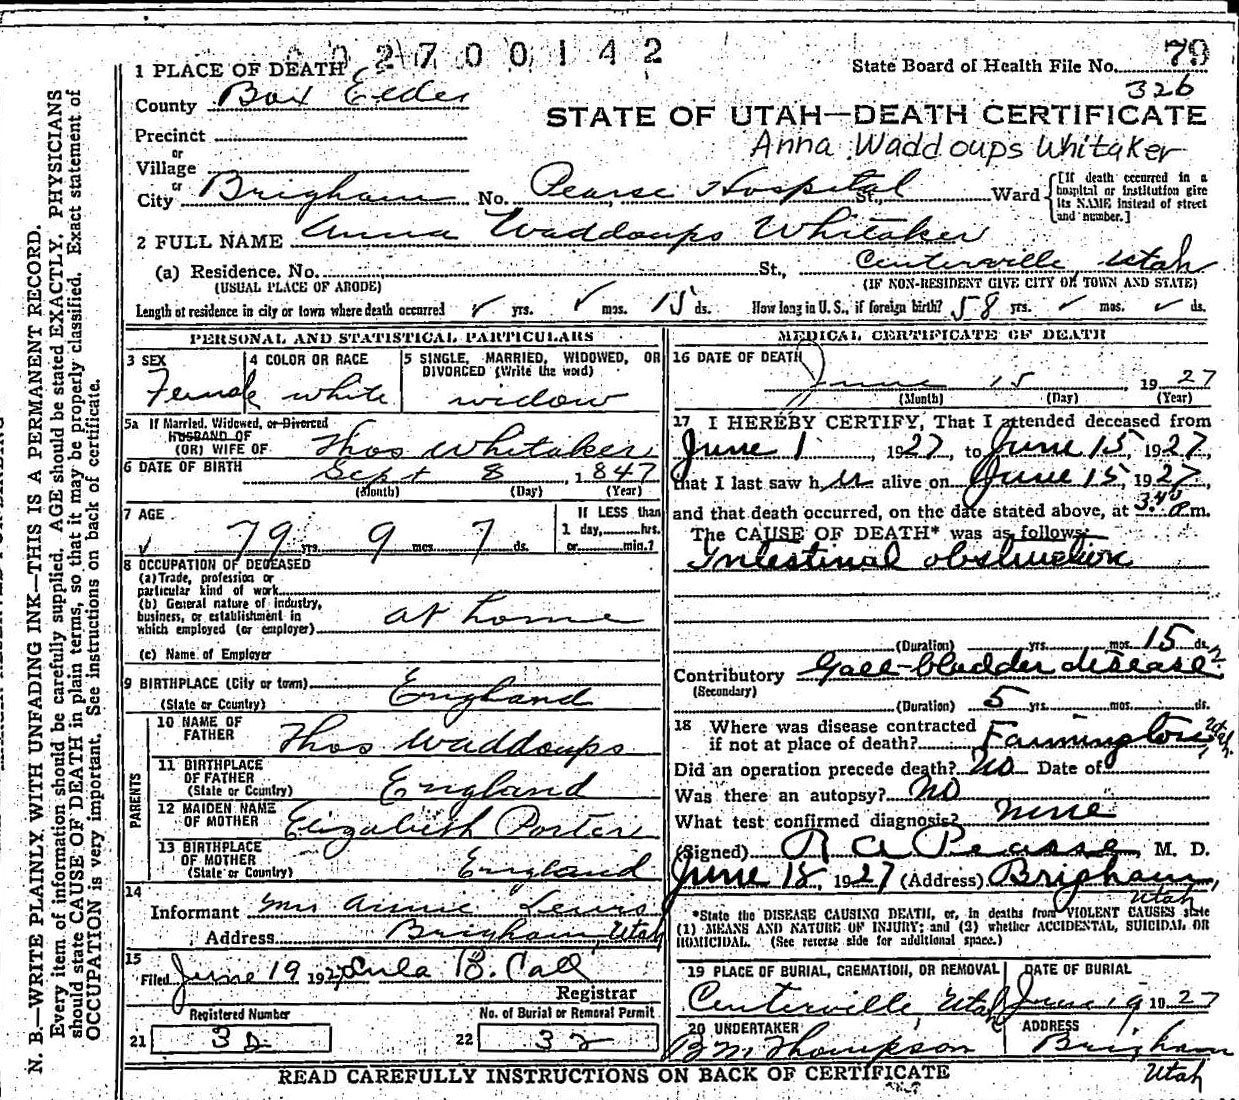 002700142
79
State Board of Health File No.
326
1 PLACE OF DEATH
County Box Elder
STATE OF UTAH—DEATH CERTIFICATE
Anna Waddoups Whitaker
Precinct
or
Village
or
City Brigham No. Pearse Hospital St., Ward
[If death occurred in a hospital or institution give its NAME instead of street and number.]
2 FULL NAME Anna Waddoups Whitaker
(a) Residence. No. St., Centerville, Utah
(USUAL PLACE OF ABODE) (IF NON-RESIDENT GIVE CITY OR TOWN AND STATE)
Length of residence in city or town where death occurred ✓ yrs. ✓ mos. 15 ds. How long in U.S., if foreign birth? 58 yrs. ✓ mos. ✓ ds.
PERSONAL AND STATISTICAL PARTICULARS
3 SEX
Female
4 COLOR OR RACE
white
5 SINGLE, MARRIED, WIDOWED, OR DIVORCED (Write the word)
widow
5a If Married, Widowed, or Divorced
HUSBAND OF
(OR) WIFE OF Thos Whitaker
6 DATE OF BIRTH Sept 8, 1847
(Month) (Day) (Year)
7 AGE
✓ 79 yrs. 9 mos. 7 ds.
If LESS than
1 day, hrs.
or min.?
8 OCCUPATION OF DECEASED
(a) Trade, profession or
particular kind of work
(b) General nature of industry,
business, or establishment in
which employed (or employer) at home
(c) Name of Employer
9 BIRTHPLACE (City or town)
(State or Country) England
PARENTS
10 NAME OF
FATHER Thos Waddoups
11 BIRTHPLACE
OF FATHER
(State or Country) England
12 MAIDEN NAME
OF MOTHER Elizabeth Porter
13 BIRTHPLACE
OF MOTHER
(State or Country) England
14
Informant Mrs Annie Lewis
Address Brigham, Utah
15
Filed June 19 1927 Lula B. Call
Registrar
Registered Number
21 32
No. of Burial or Removal Permit
22 32
MEDICAL CERTIFICATE OF DEATH
16 DATE OF DEATH
June 15 1927
(Month) (Day) (Year)
17 I HEREBY CERTIFY, That I attended deceased from
June 1, 1927, to June 15, 1927,
that I last saw her alive on June 15, 1927,
and that death occurred, on the date stated above, at 3:40 P.m.
The CAUSE OF DEATH* was as follows:
Intestinal obstruction
(Duration) yrs. mos. 15 ds.
Contributory Gall-bladder disease
(Secondary)
(Duration) 5 yrs. mos. ds.
18 Where was disease contracted
if not at place of death? Farmington, Utah.
Did an operation precede death? No Date of
Was there an autopsy? No
What test confirmed diagnosis? none
(Signed) R A Pearse, M. D.
June 18, 1927 (Address) Brigham,
Utah
*State the DISEASE CAUSING DEATH, or, in deaths from VIOLENT CAUSES state
(1) MEANS AND NATURE OF INJURY; and (2) whether ACCIDENTAL, SUICIDAL OR
HOMICIDAL. (See reverse side for additional space.)
19 PLACE OF BURIAL, CREMATION, OR REMOVAL
Centerville Utah
DATE OF BURIAL
June 19 1927
20 UNDERTAKER
B M Thompson
ADDRESS
Brigham
Utah
READ CAREFULLY INSTRUCTIONS ON BACK OF CERTIFICATE
N. B.—WRITE PLAINLY WITH UNFADING INK—THIS IS A PERMANENT RECORD.
Every item of information should be carefully supplied. AGE should be stated EXACTLY. PHYSICIANS
should state CAUSE OF DEATH in plain terms, so that it may be properly classified. Exact statement of
OCCUPATION is very important. See instructions on back of certificate.